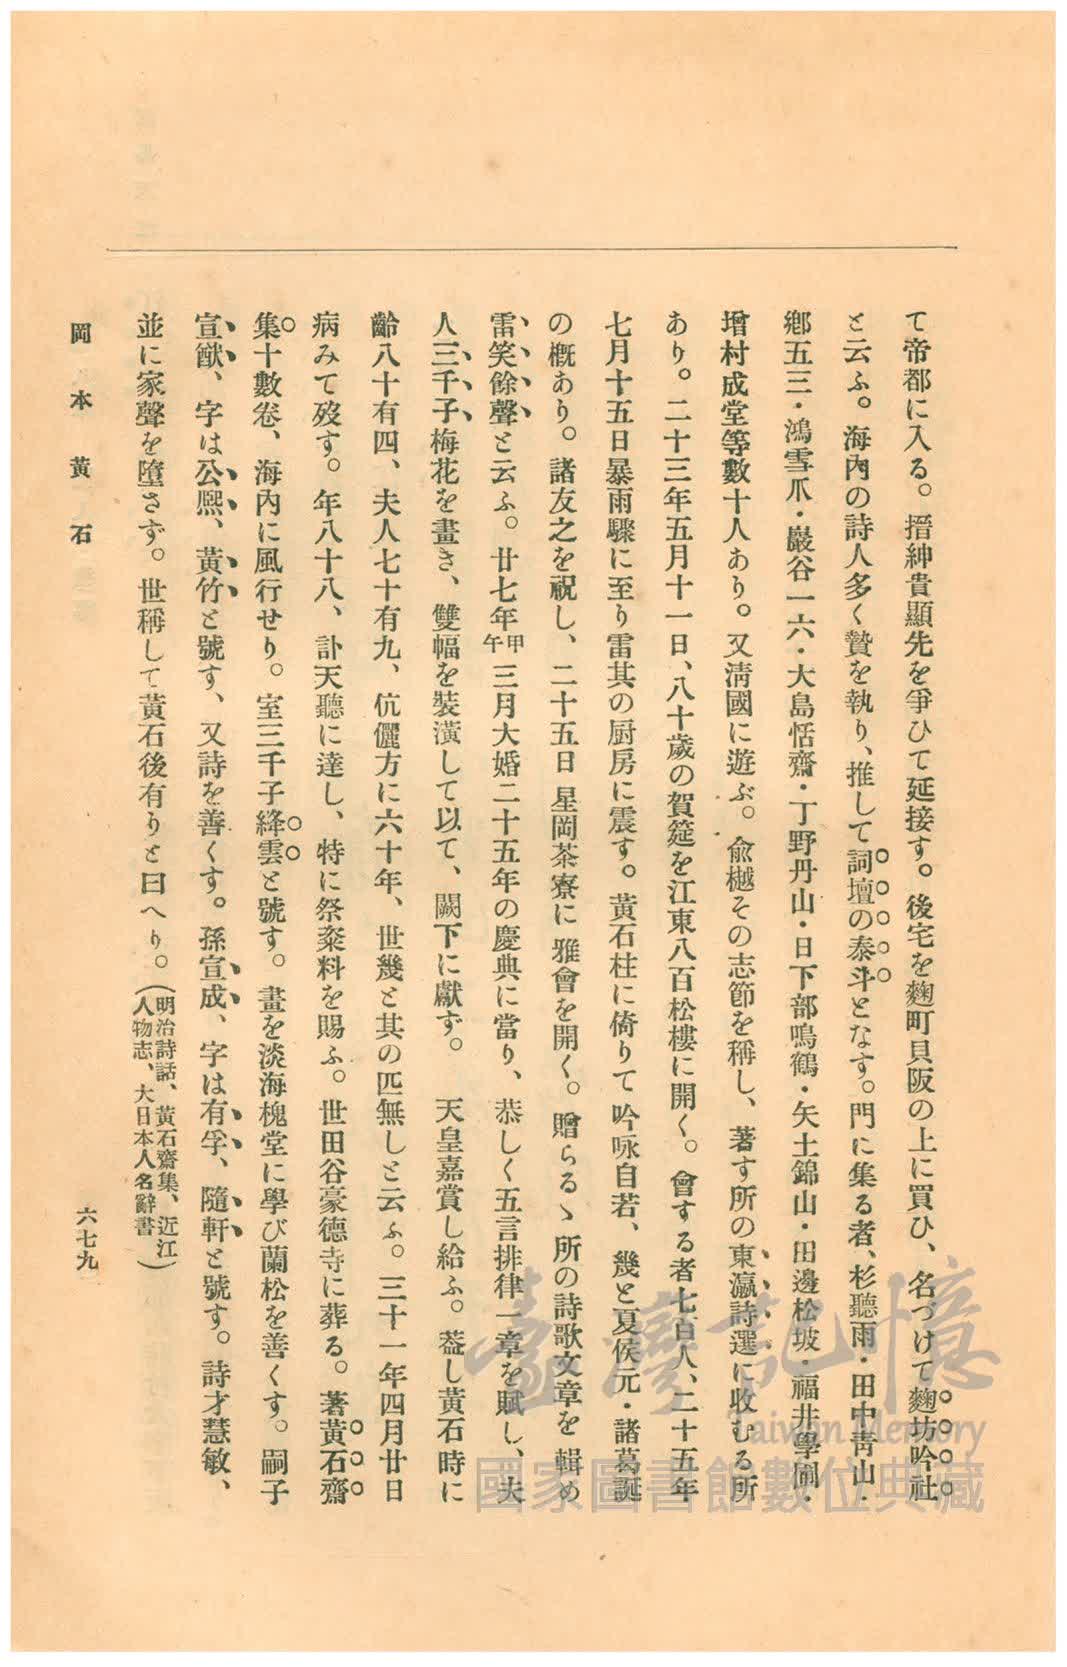 て帝都に入る。搢紳貴顯先を爭ひて延接す。後宅を麴町貝阪の上に買ひ、名づけて麴坊吟社
と云ふ。海內の詩人多く贄を執り、推して詞壇の泰斗となす。門に集る者、杉聽雨・田中靑山・
鄕五三・鴻雪爪・巖谷一六・大島恬齋・丁野丹山・日下部鳴鶴・矢土錦山・田邊松坡・福井學圃・
增村成堂等數十人あり。又淸國に遊ぶ。兪樾その志節を稱し、著す所の東瀛詩選に收むる所
あり。二十三年五月十一日、八十歲の賀筵を江東八百松樓に開く。會する者七百人、二十五年
七月十五日暴雨驟に至り雷其の厨房に震す。黃石柱に倚りて吟咏自若、幾と夏侯元・諸葛誕
の槪あり。諸友之を祝し、二十五日星岡茶寮に雅會を開く。贈らるゝ所の詩歌文章を輯め
雷笑餘聲と云ふ。廿七年甲午三月大婚二十五年の慶典に當り、恭しく五言排律一章を賦し、夫
人三千子梅花を畫き、雙幅を裝潢して以て、闕下に獻ず。　天皇嘉賞し給ふ。葢し黃石時に
齡八十有四、夫人七十有九、伉儷方に六十年、世幾と其の匹無しと云ふ。三十一年四月廿日
病みて歿す。年八十八、訃天聽に達し、特に祭粢料を賜ふ。世田谷豪德寺に葬る。著黃石齋
集十數卷、海內に風行せり。室三千子絳雲と號す。畫を淡海槐堂に學び蘭松を善くす。嗣子
宣猷、字は公熈、黃竹と號す、又詩を善くす。孫宣成、字は有孚、隨軒と號す。詩才慧敏、
並に家聲を墮さず。世稱して黃石後有りと曰へり。（明治詩話、黃石齋集、近江
人物志、大日本人名辭書）
岡本黃石
六七九
臺灣記憶
Taiwan Memory
國家圖書館數位典藏